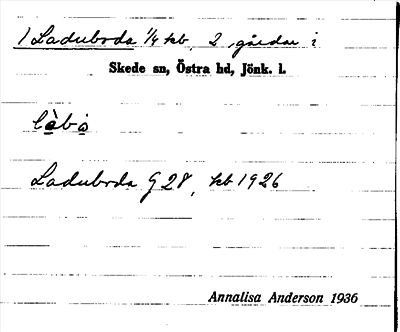 1 Ladubroda 1/4 kb, 2 gårdar i
Skede sn, Östra hd, Jönk. l.
Ladubroda G 28, kb 1926
Annalisa Anderson 1936